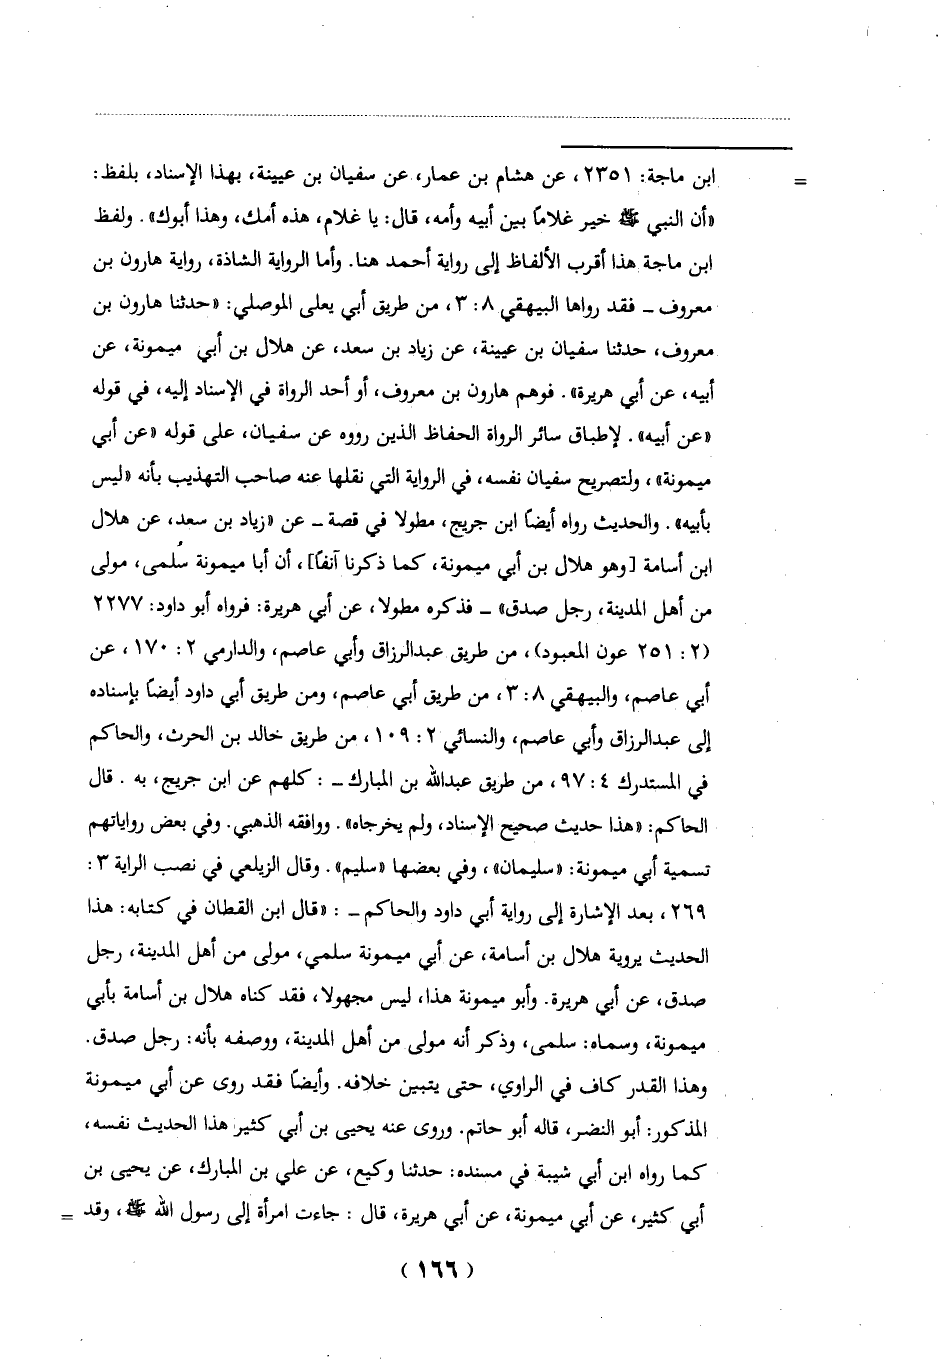 = ابن ماجة: ٢٣٥١، عن هشام بن عمار، عن سفيان بن عيينة، بهذا الإسناد، بلفظ:
«أن النبي ﷺ خير غلامًا بين أبيه وأمه، قال: يا غلام، هذه أمك، وهذا أبوك». ولفظ
ابن ماجة هذا أقرب الألفاظ إلى رواية أحمد هنا. وأما الرواية الشاذة، رواية هارون بن
معروف ــ فقد رواها البيهقي ٨: ٣، من طريق أبي يعلى الموصلي: «حدثنا هارون بن
معروف، حدثنا سفيان بن عيينة، عن زياد بن سعد، عن هلال بن أبي ميمونة، عن
أبيه، عن أبي هريرة». فوهم هارون بن معروف، أو أحد الرواة في الإسناد إليه، في قوله
«عن أبيه». لإطباق سائر الرواة الحفاظ الذين رووه عن سفيان، على قوله «عن أبي
ميمونة»، ولتصريح سفيان نفسه، في الرواية التي نقلها عنه صاحب التهذيب بأنه «ليس
بأبيه». والحديث رواه أيضًا ابن جريج، مطولا في قصة ــ عن «زياد بن سعد، عن هلال
ابن أسامة [وهو هلال بن أبي ميمونة، كما ذكرنا آنفًا]، أن أبا ميمونة سُلمى، مولى
من أهل المدينة، رجل صدق» ــ فذكره مطولا، عن أبي هريرة: فرواه أبو داود: ٢٢٧٧
(٢: ٢٥١ عون المعبود)، من طريق عبدالرزاق وأبي عاصم، والدارمي ٢: ١٧٠، عن
أبي عاصم، والبيهقي ٨: ٣، من طريق أبي عاصم، ومن طريق أبي داود أيضًا بإسناده
إلى عبدالرزاق وأبي عاصم، والنسائي ٢: ١٠٩، من طريق خالد بن الحرث، والحاكم
في المستدرك ٤: ٩٧، من طريق عبدالله بن المبارك ــ : كلهم عن ابن جريج، به . قال
الحاكم: «هذا حديث صحيح الإسناد، ولم يخرجاه». ووافقه الذهبي. وفي بعض رواياتهم
تسمية أبي ميمونة: «سليمان»، وفي بعضها «سليم». وقال الزيلعي في نصب الراية ٣:
٢٦٩، بعد الإشارة إلى رواية أبي داود والحاكم ــ : «قال ابن القطان في كتابه: هذا
الحديث يروية هلال بن أسامة، عن أبي ميمونة سلمي، مولى من أهل المدينة، رجل
صدق، عن أبي هريرة. وأبو ميمونة هذا، ليس مجهولا، فقد كناه هلال بن أسامة بأبي
ميمونة، وسماه: سلمى، وذكر أنه مولى من أهل المدينة، ووصفه بأنه: رجل صدق.
وهذا القدر كاف في الراوي، حتى يتبين خلافه. وأيضًا فقد روى عن أبي ميمونة
المذكور: أبو النضر، قاله أبو حاتم. وروى عنه يحيى بن أبي كثير هذا الحديث نفسه،
كما رواه ابن أبي شيبة في مسنده: حدثنا وكيع، عن علي بن المبارك، عن يحيى بن
أبي كثير، عن أبي ميمونة، عن أبي هريرة، قال : جاءت امرأة إلى رسول الله ﷺ، وقد =
(١٦٦)